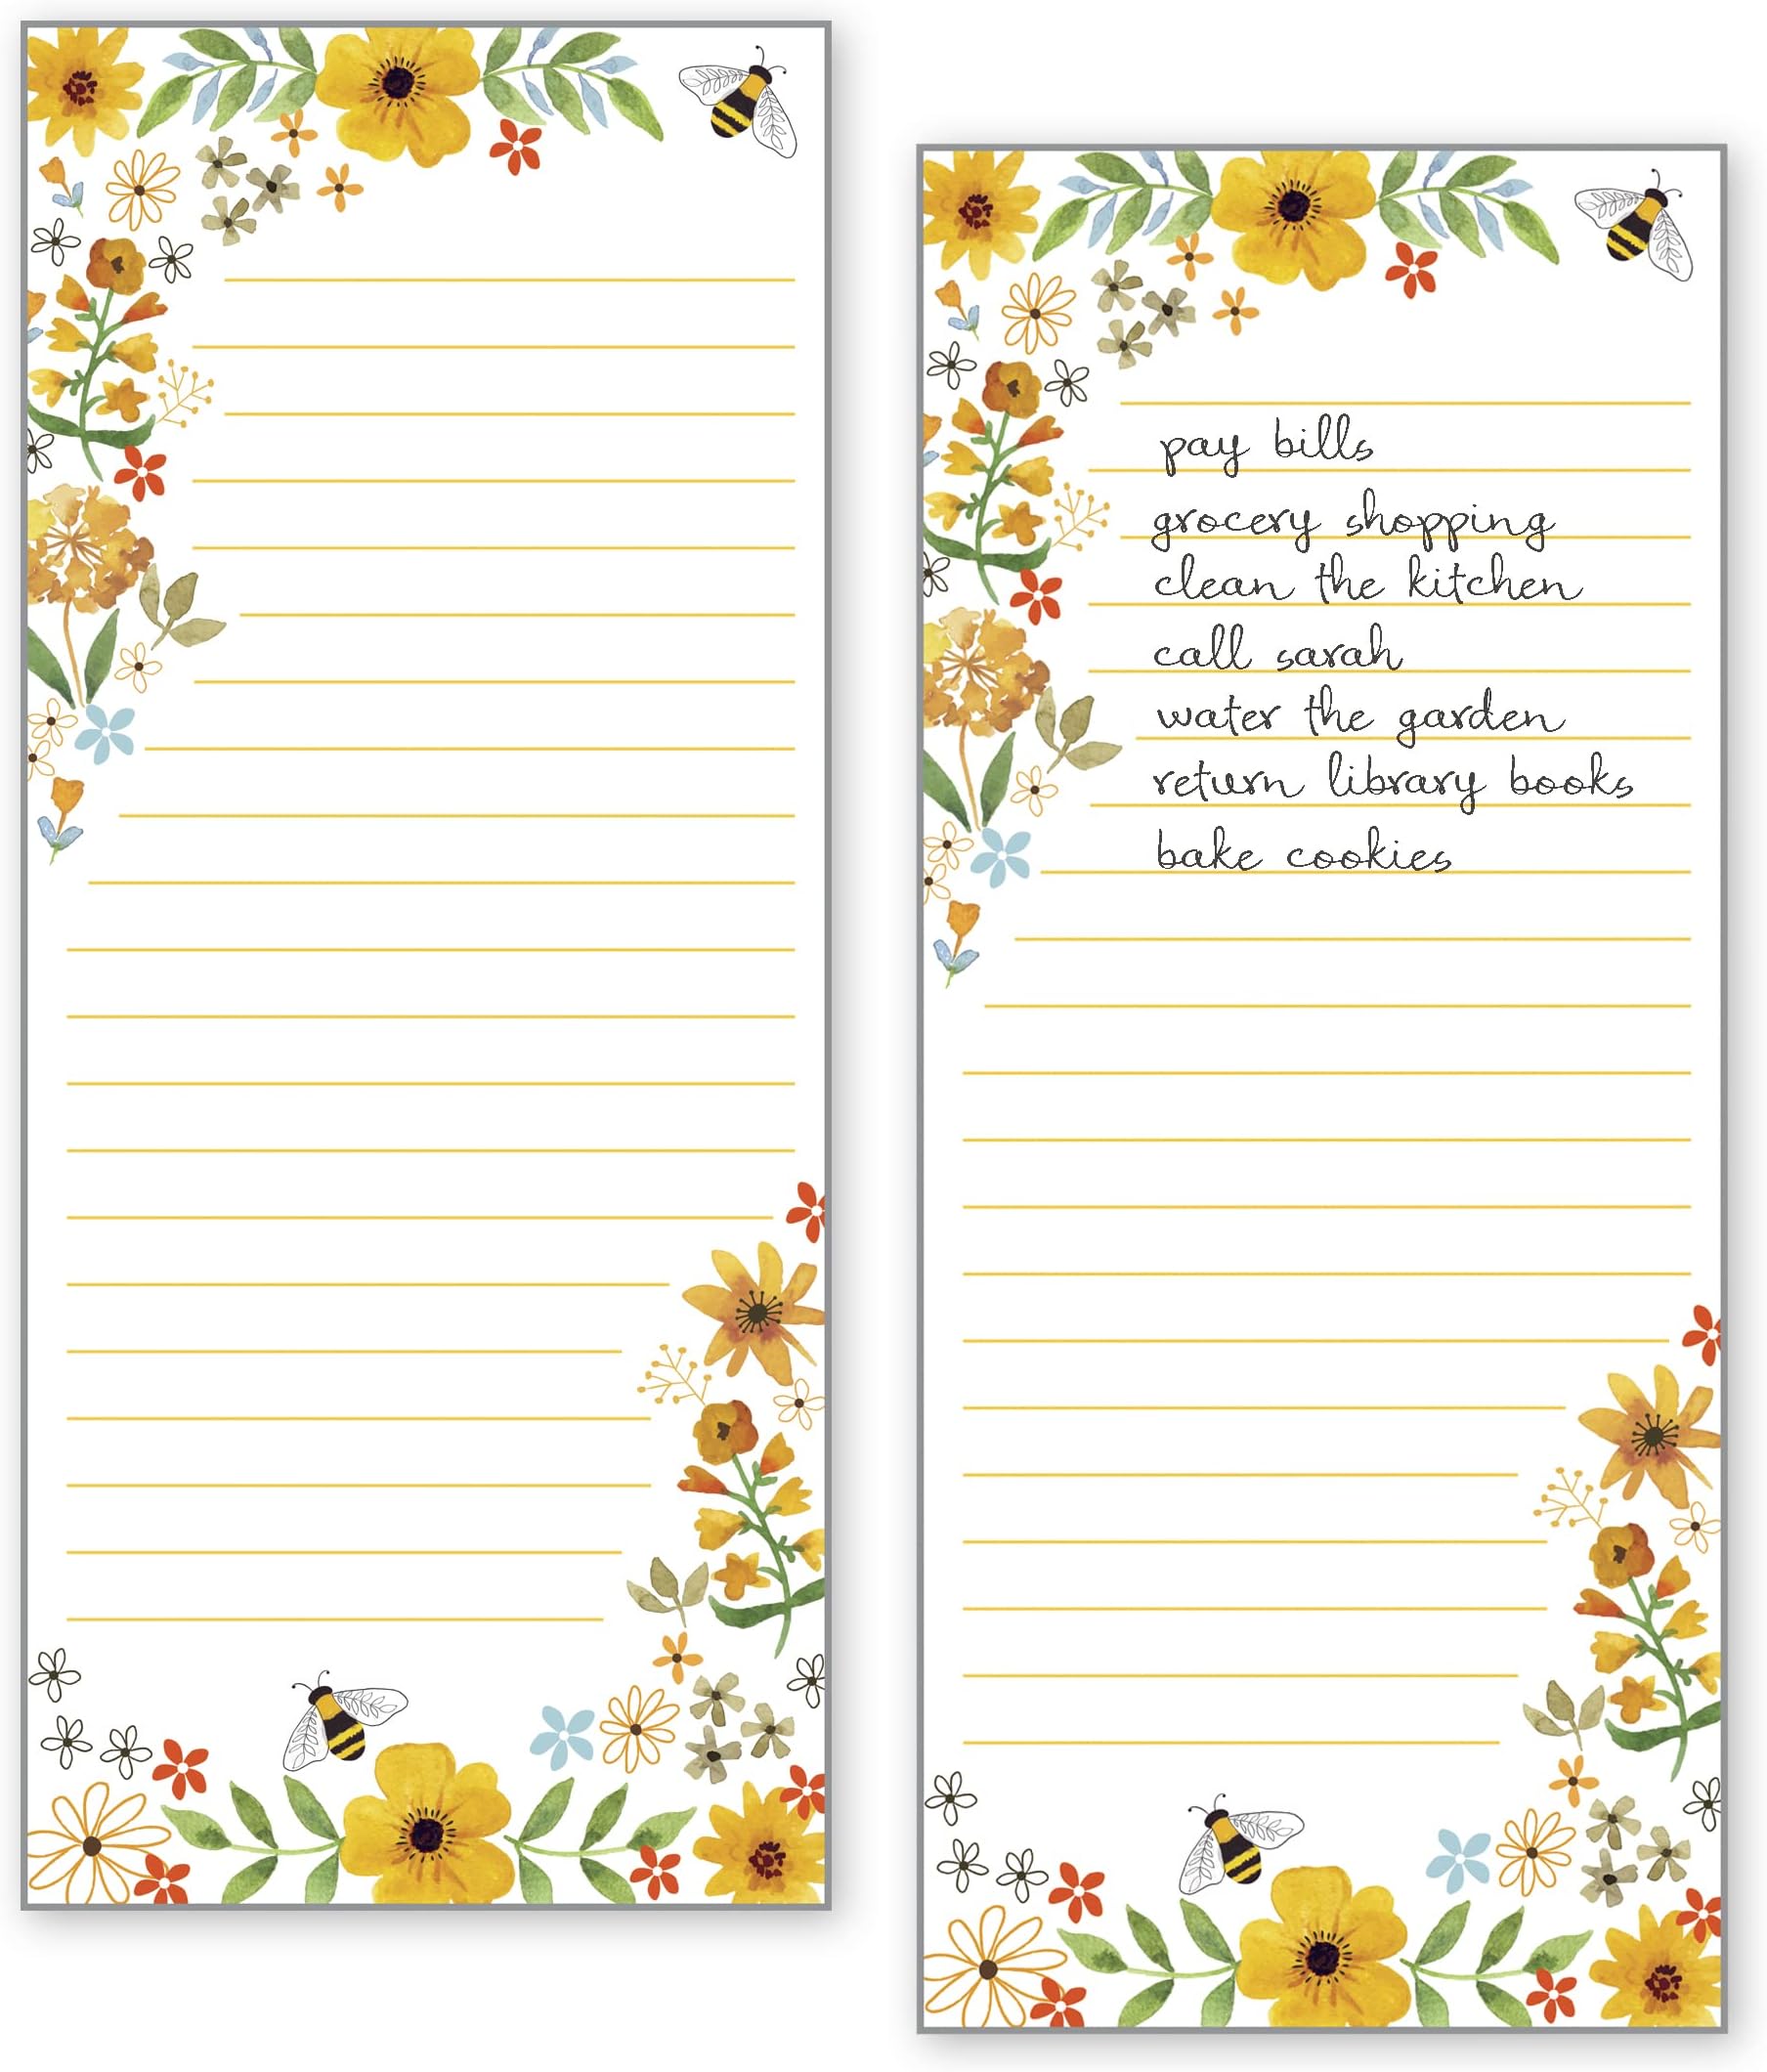 pay bills
grocery shopping
clean the kitchen
call sarah
water the garden
return library books
bake cookies